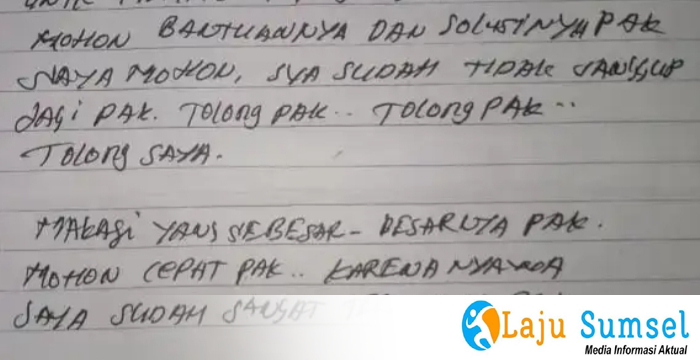 MOHON BANTUANNYA DAN SOLUSINYA PAK
SAYA MOHON, SYA SUDAH TIDAK SANGGUP
LAGi PAK. TOLONG PAK.. TOLONG PAK..
TOLONG SAYA.
MAKASi YANG SEBESAR-BESARNYA PAK.
MOHON CEPAT PAK.. KARENA NYAWA
SAYA SUDAH SANGAT
Laju Sumsel
Media Informasi Aktual